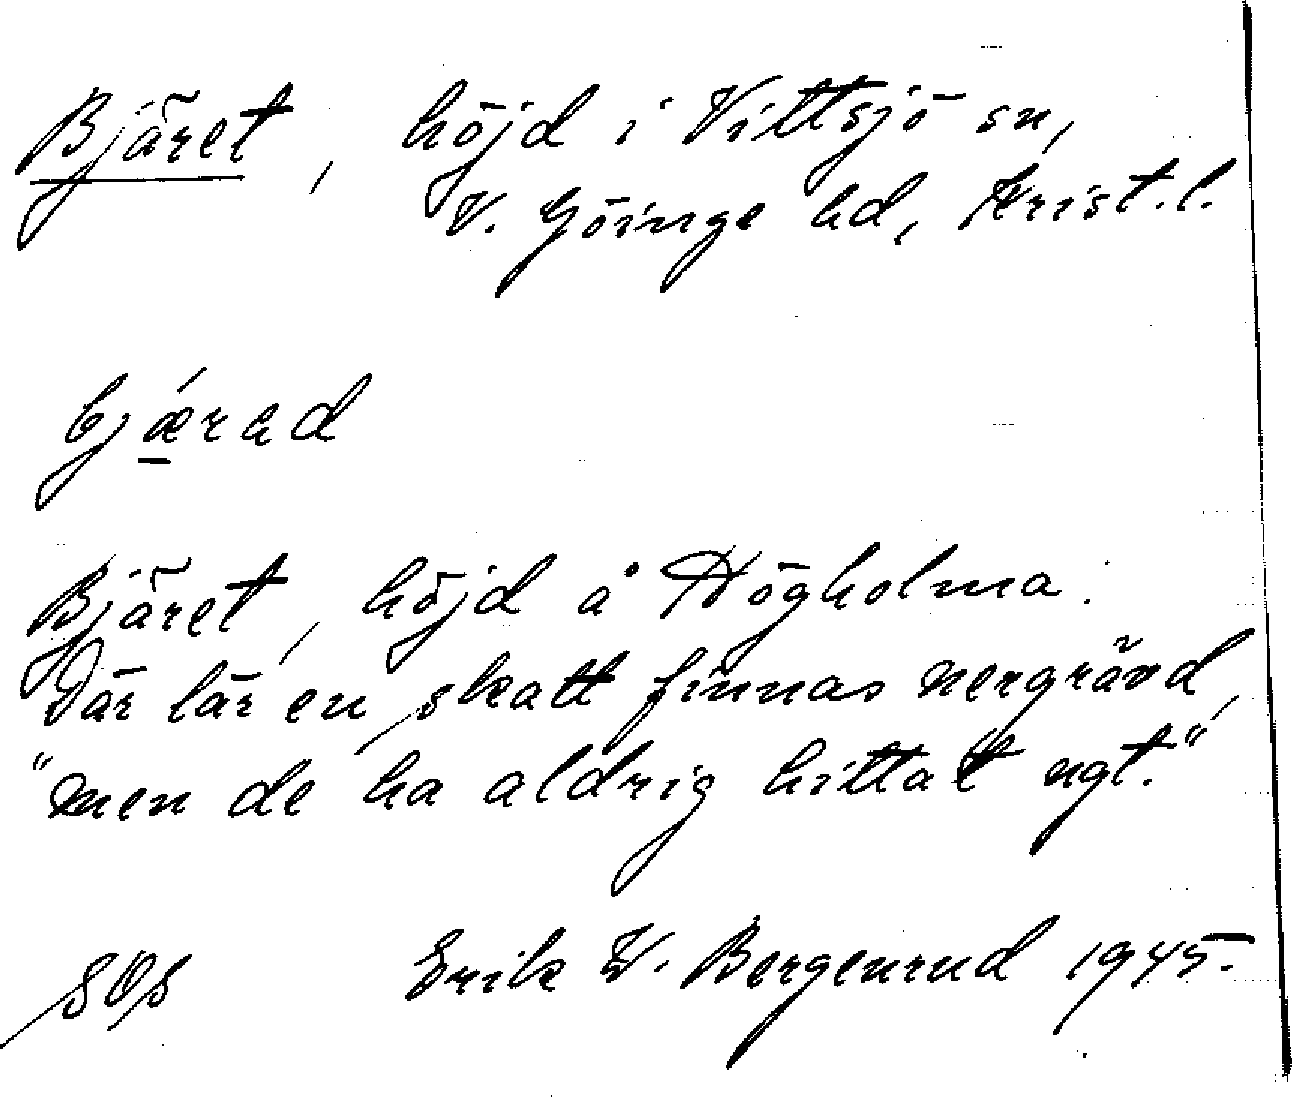 Bjäret, höjd i Vittsjö sn,
V. Göinge hd, Krist.l.
bjǽ̱rad
Bjäret, höjd å Högholma.
Där lär en skatt finnas nergrävd,
"men de ha aldrig hittat ngt."
Erik W. Bergenrud 1945.